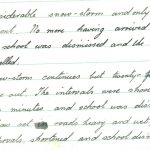 derable snow-storm and only
out. No more having arrived
school was dismissed and the
lled.
ow-storm continues but twenty-f
out. The intervals were shor
minutes and school was dis
set roads heavy and wet.
ervals, shortened and school dism